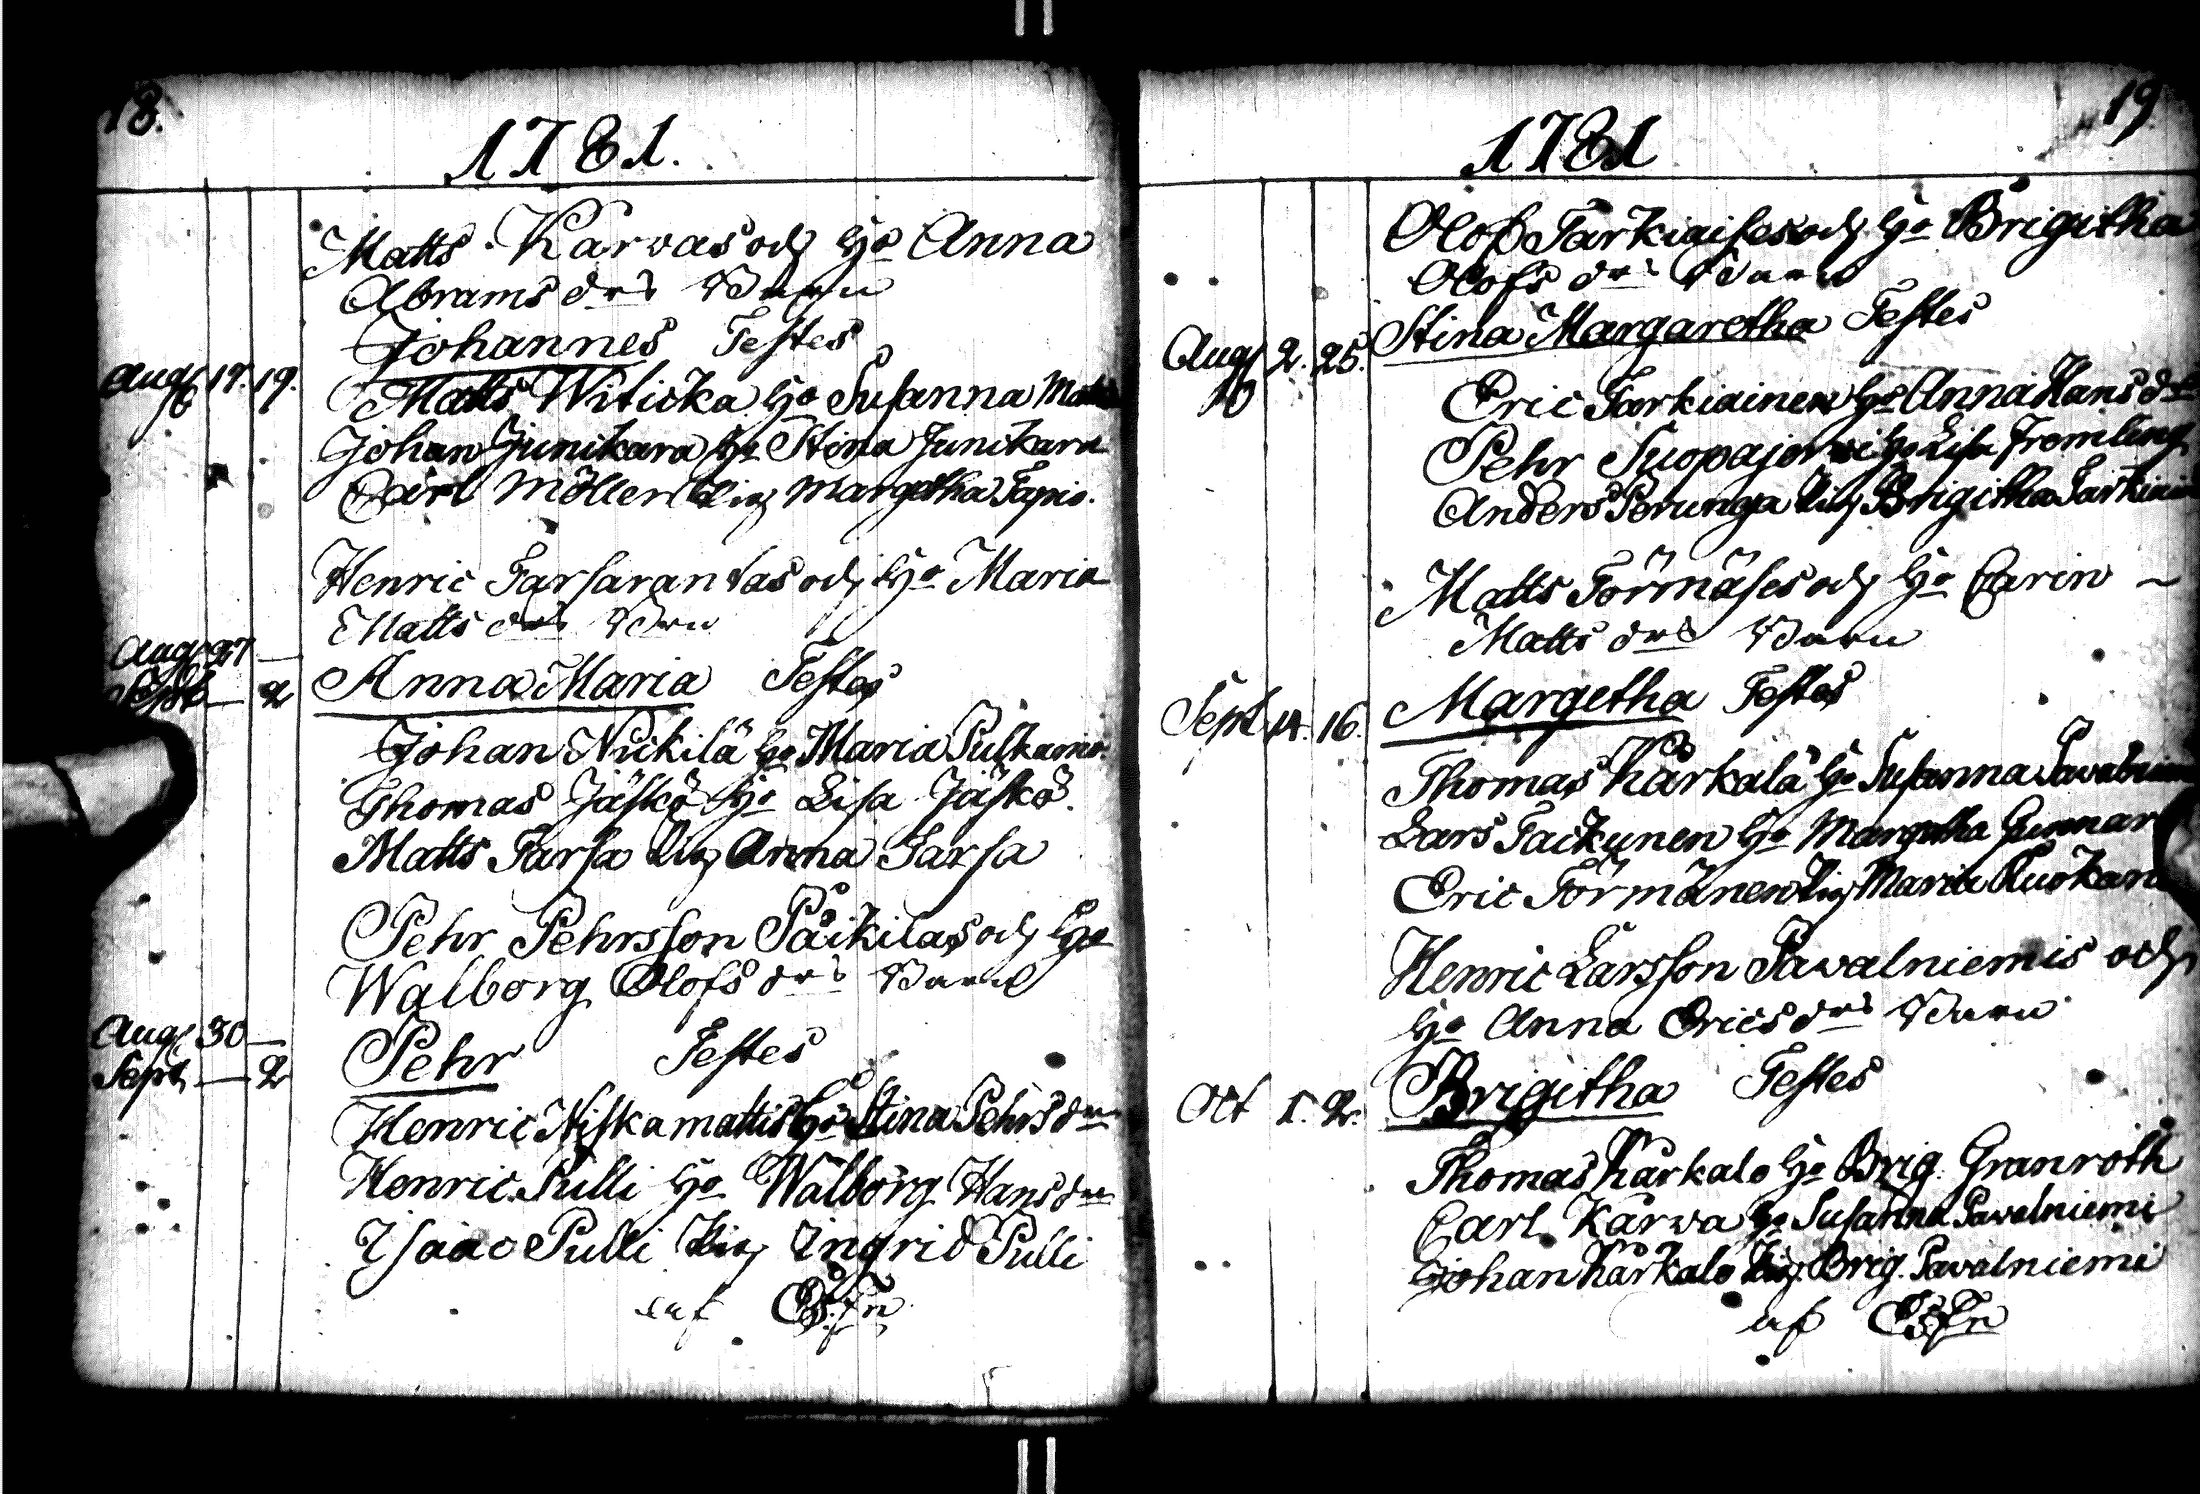 18.
1781.
Matts Karvas och Ho Anna
Abrams drs Barn
Johannes Testes
Aug 17. 19.
Matts Witicka Ho Susanna Matts
Johan Junikara Ho Stina Junikara
Carl Möller Pig Margetha Tapio.
Henric Tarsarantas och Ho Maria
Matts drs Brn
Aug 27 —
Sept — 2
Anna Maria Testes
Johan Nickilä Ho Maria Pulkamo.
Thomas Jäskö Ho Lisa Jäskö.
Matts Tarsa Pig Anna Tarsa
Pehr Pehrsson Päikilas och Ho
Walborg Olofs drs Barn
Aug 30 —
Sept — 2
Pehr Testes
Henric Niskamattis Ho Stina Pehrs dr
Henric Pulli Ho Walborg Hans dr
Isaac Pulli Pig Ingrid Pulli
af
19
1781
Olof Tarkiaises och Ho Brigitha
Olofs drs Barn
Aug 2. 25.
Stina Margaretha Testes
Eric Tarkiainen Ho Anna Hans dr
Pehr Suopajervi Ho Lisa Fremling
Anders Perunga Pig Brigitha Tarkiain
Matts Törmäses och Ho Carin –
Matts drs Barn
Sept 14. 16.
Margetha Testes
Thomas Kårkalå Ho Susanna Pavalniemi
Lars Tackunen Ho Margetha Gunnar
Eric Törmänen Pig Maria Kuokan
Henric Larsson Pavalniemis och
Ho Anna Erics drs Barn
Oct 1. 2.
Brigitha Testes
Thomas Kårkalo Ho Brig. Granroth
Carl Karva Ho Susanna Pavalniemi
Johan Kårkalo Pig Brig. Pavalniemi
af